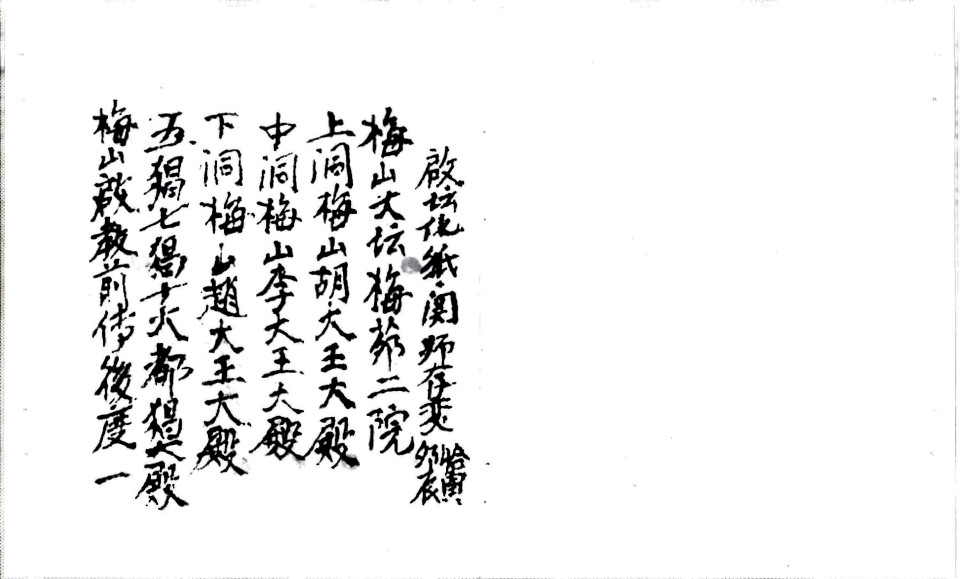 啟坛化紙関師存変
梅山大坛梅邜二院
上洞梅山胡大王大殿
中洞梅山李大王大殿
下洞梅山趙大王大殿
五猖七猖十大都猖大殿
梅山啟教前傳後度一